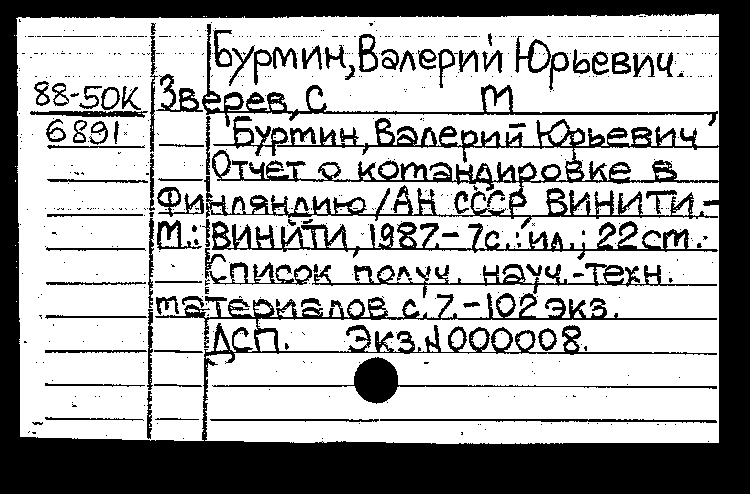 Бурмин, Валерий Юрьевич.
88-50К Зверев, С М
6891 Бурмин, Валерий Юрьевич
Отчет о командировке в
Финляндию / АН СССР, ВИНИТИ.-
М.: ВИНИТИ, 1987.- 7с.: ил.; 22 cm.-
Список получ. науч.-техн.
материалов с. 7.-102 экз.
ДСП. Экз.N 000008.